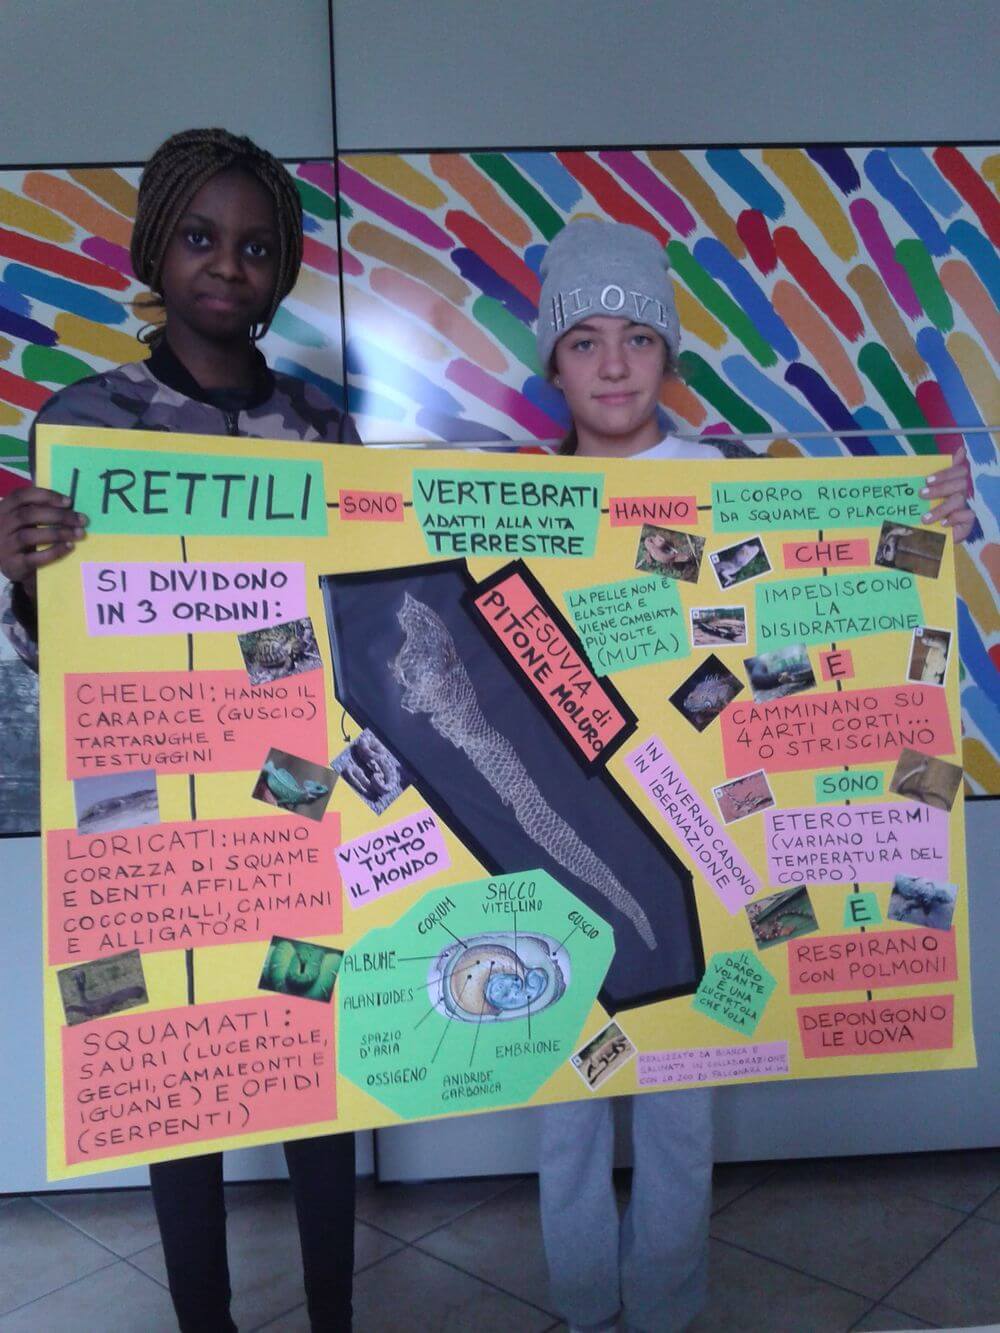 #LOVE
I RETTILI
SONO
VERTEBRATI
ADATTI ALLA VITA
TERRESTRE
HANNO
IL CORPO RICOPERTO
DA SQUAME O PLACCHE
CHE
IMPEDISCONO
LA
DISIDRATAZIONE
E
CAMMINANO SU
4 ARTI CORTI...
O STRISCIANO
SONO
ETEROTERMI
(VARIANO LA
TEMPERATURA DEL
CORPO)
E
RESPIRANO
CON POLMONI
DEPONGONO
LE UOVA
SI DIVIDONO
IN 3 ORDINI:
CHELONI: HANNO IL
CARAPACE (GUSCIO)
TARTARUGHE E
TESTUGGINI
LORICATI: HANNO
CORAZZA DI SQUAME
E DENTI AFFILATI
COCCODRILLI, CAIMANI
E ALLIGATORI
SQUAMATI:
SAURI (LUCERTOLE,
GECHI, CAMALEONTI E
IGUANE) E OFIDI
(SERPENTI)
ESUVIA di
PITONE MOLURO
LA PELLE NON È
ELASTICA E
VIENE CAMBIATA
PIÙ VOLTE
(MUTA)
IN INVERNO CADONO
IN IBERNAZIONE
VIVONO IN
TUTTO
IL MONDO
SACCO
VITELLINO
CORIUM
GUSCIO
ALBUME
ALANTOIDES
SPAZIO
D'ARIA
OSSIGENO
ANIDRIDE
CARBONICA
EMBRIONE
IL
DRAGO
VOLANTE
È UNA
LUCERTOLA
CHE VOLA
REALIZZATO DA BIANCA E
SALINATA IN COLLABORAZIONE
CON LO ZOO DI FALCONARA M.MA